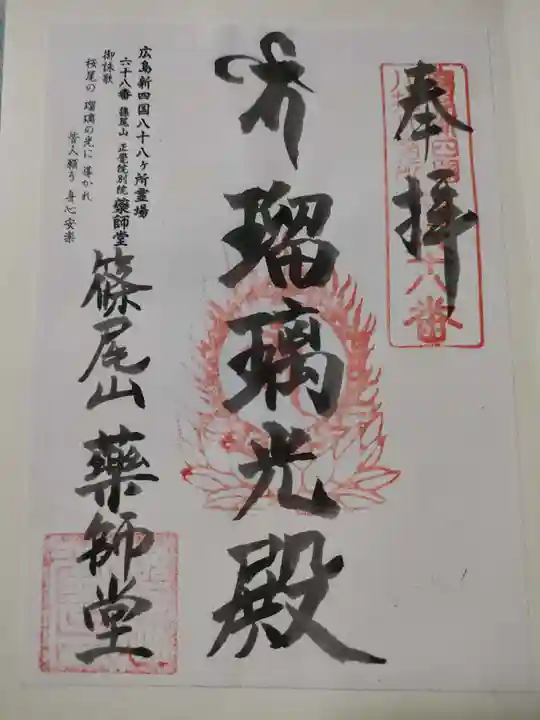 奉拝
瑠璃光殿
広島新四国八十八ヶ所霊場
六十八番 篠尾山 正覚院別院 薬師堂
御詠歌
桜尾の 瑠璃の光に 導かれ
皆人願う 身心安楽
篠尾山 藥師堂